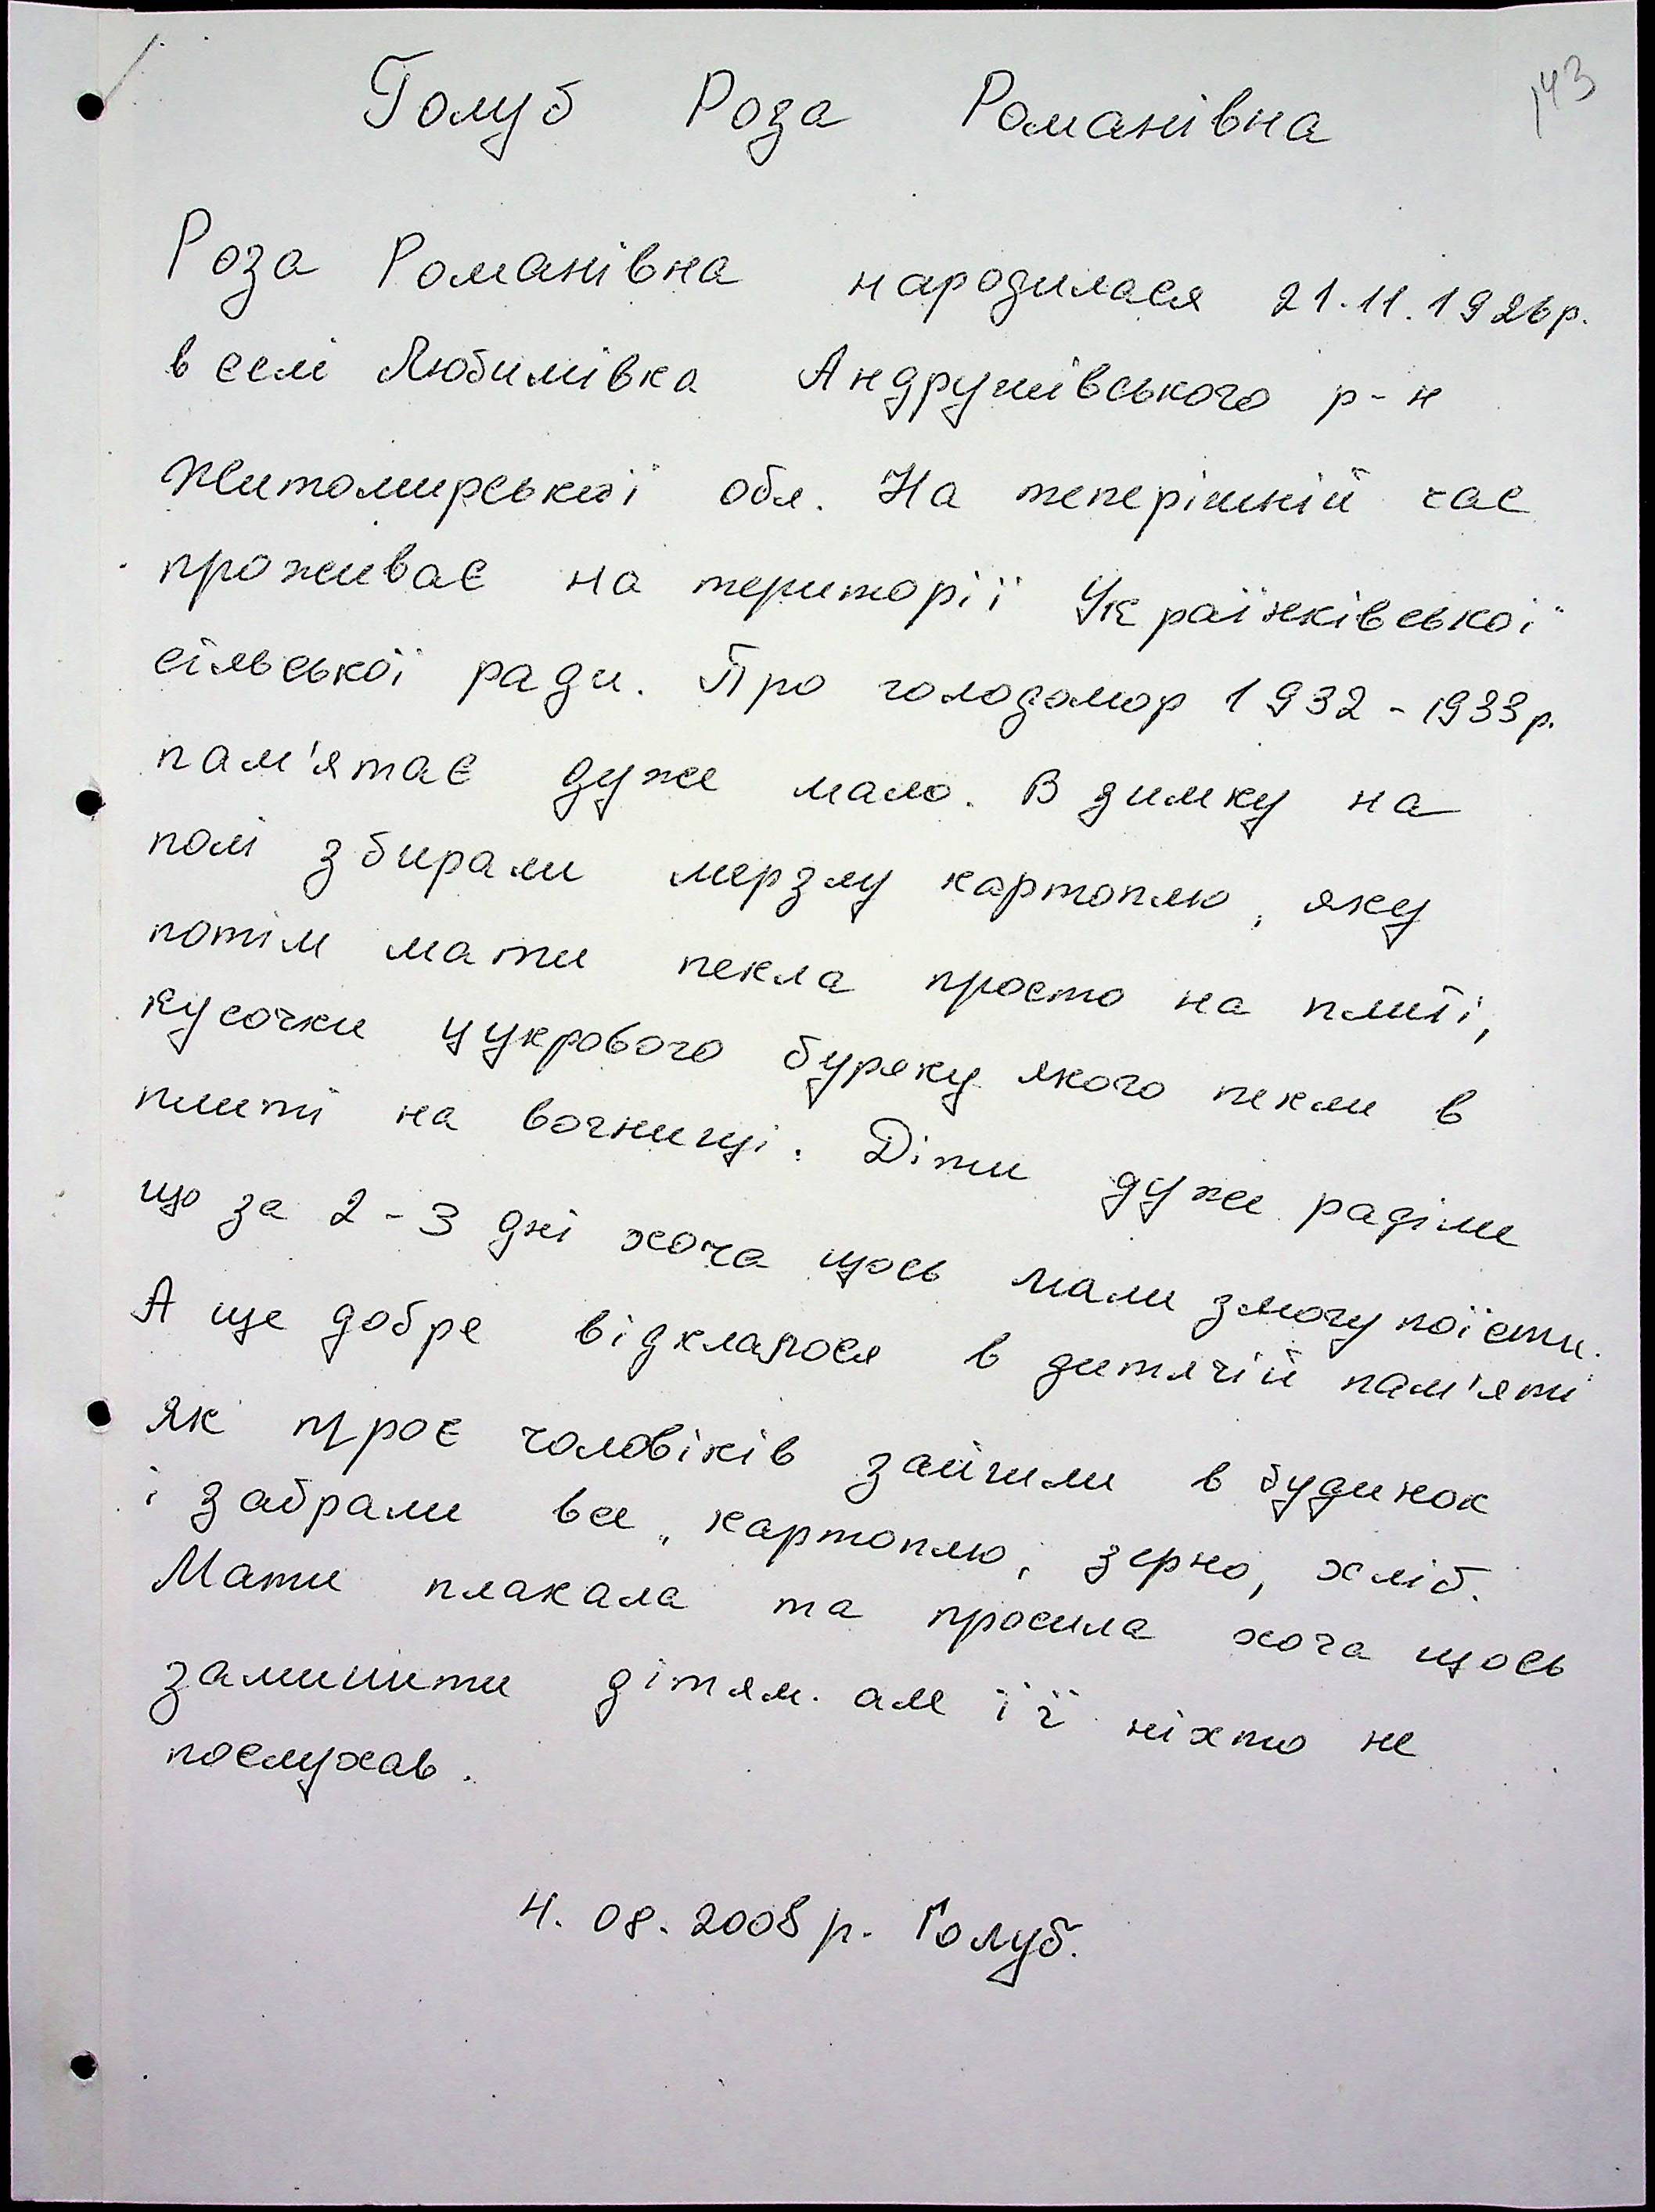 143
Голуб Роза Романівна
Роза Романівна народилася 21.11.1926р.
в селі Любимівка Андрушівського р-н
Житомирської обл. На теперішній час
проживає на території Українківської
сільської ради. Про голодомор 1932-1933р.
пам'ятає дуже мало. В зимку на
полі збирали мерзлу картоплю, яку
потім мати пекла просто на плиті,
кусочки цукрового буряку якого пекли в
плиті на вогнищі. Діти дуже раділи
що за 2-3 дні хоча щось мали змогу поїсти.
А ще добре відклалося в дитячій пам'яті
як троє чоловіків зайшли в будинок
і забрали все, картоплю, зерно, хліб.
Мати плакала та просила хоча щось
залишити дітям. але її ніхто не
послухав.
4.08.2008р. Голуб.